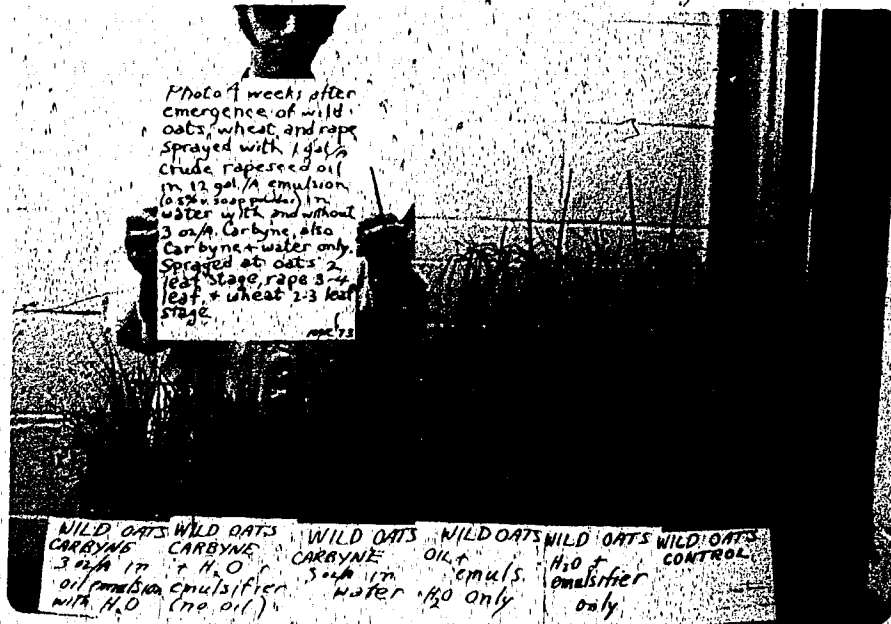 Photo 4 weeks after
emergence of wild
oats, wheat, and rape
sprayed with 1 gal/A
crude rapeseed oil
in 12 gal/A emulsion
(0.5% v. soap powder) in
water with and without
3 oz/A. Carbyne, also
Carbyne + water only.
Sprayed at oats 2
leaf stage, rape 3-4
leaf, + wheat 2-3 leaf
stage
'73
WILD OATS
CARBYNE
3 oz/A in
oil emulsion
with H2O
WILD OATS
CARBYNE
+ H2O +
emulsifier
(no oil)
WILD OATS
CARBYNE
3 oz/A in
water
WILD OATS
OIL +
emuls.
H2O only
WILD OATS
H2O +
emulsifier
only
WILD OATS
CONTROL